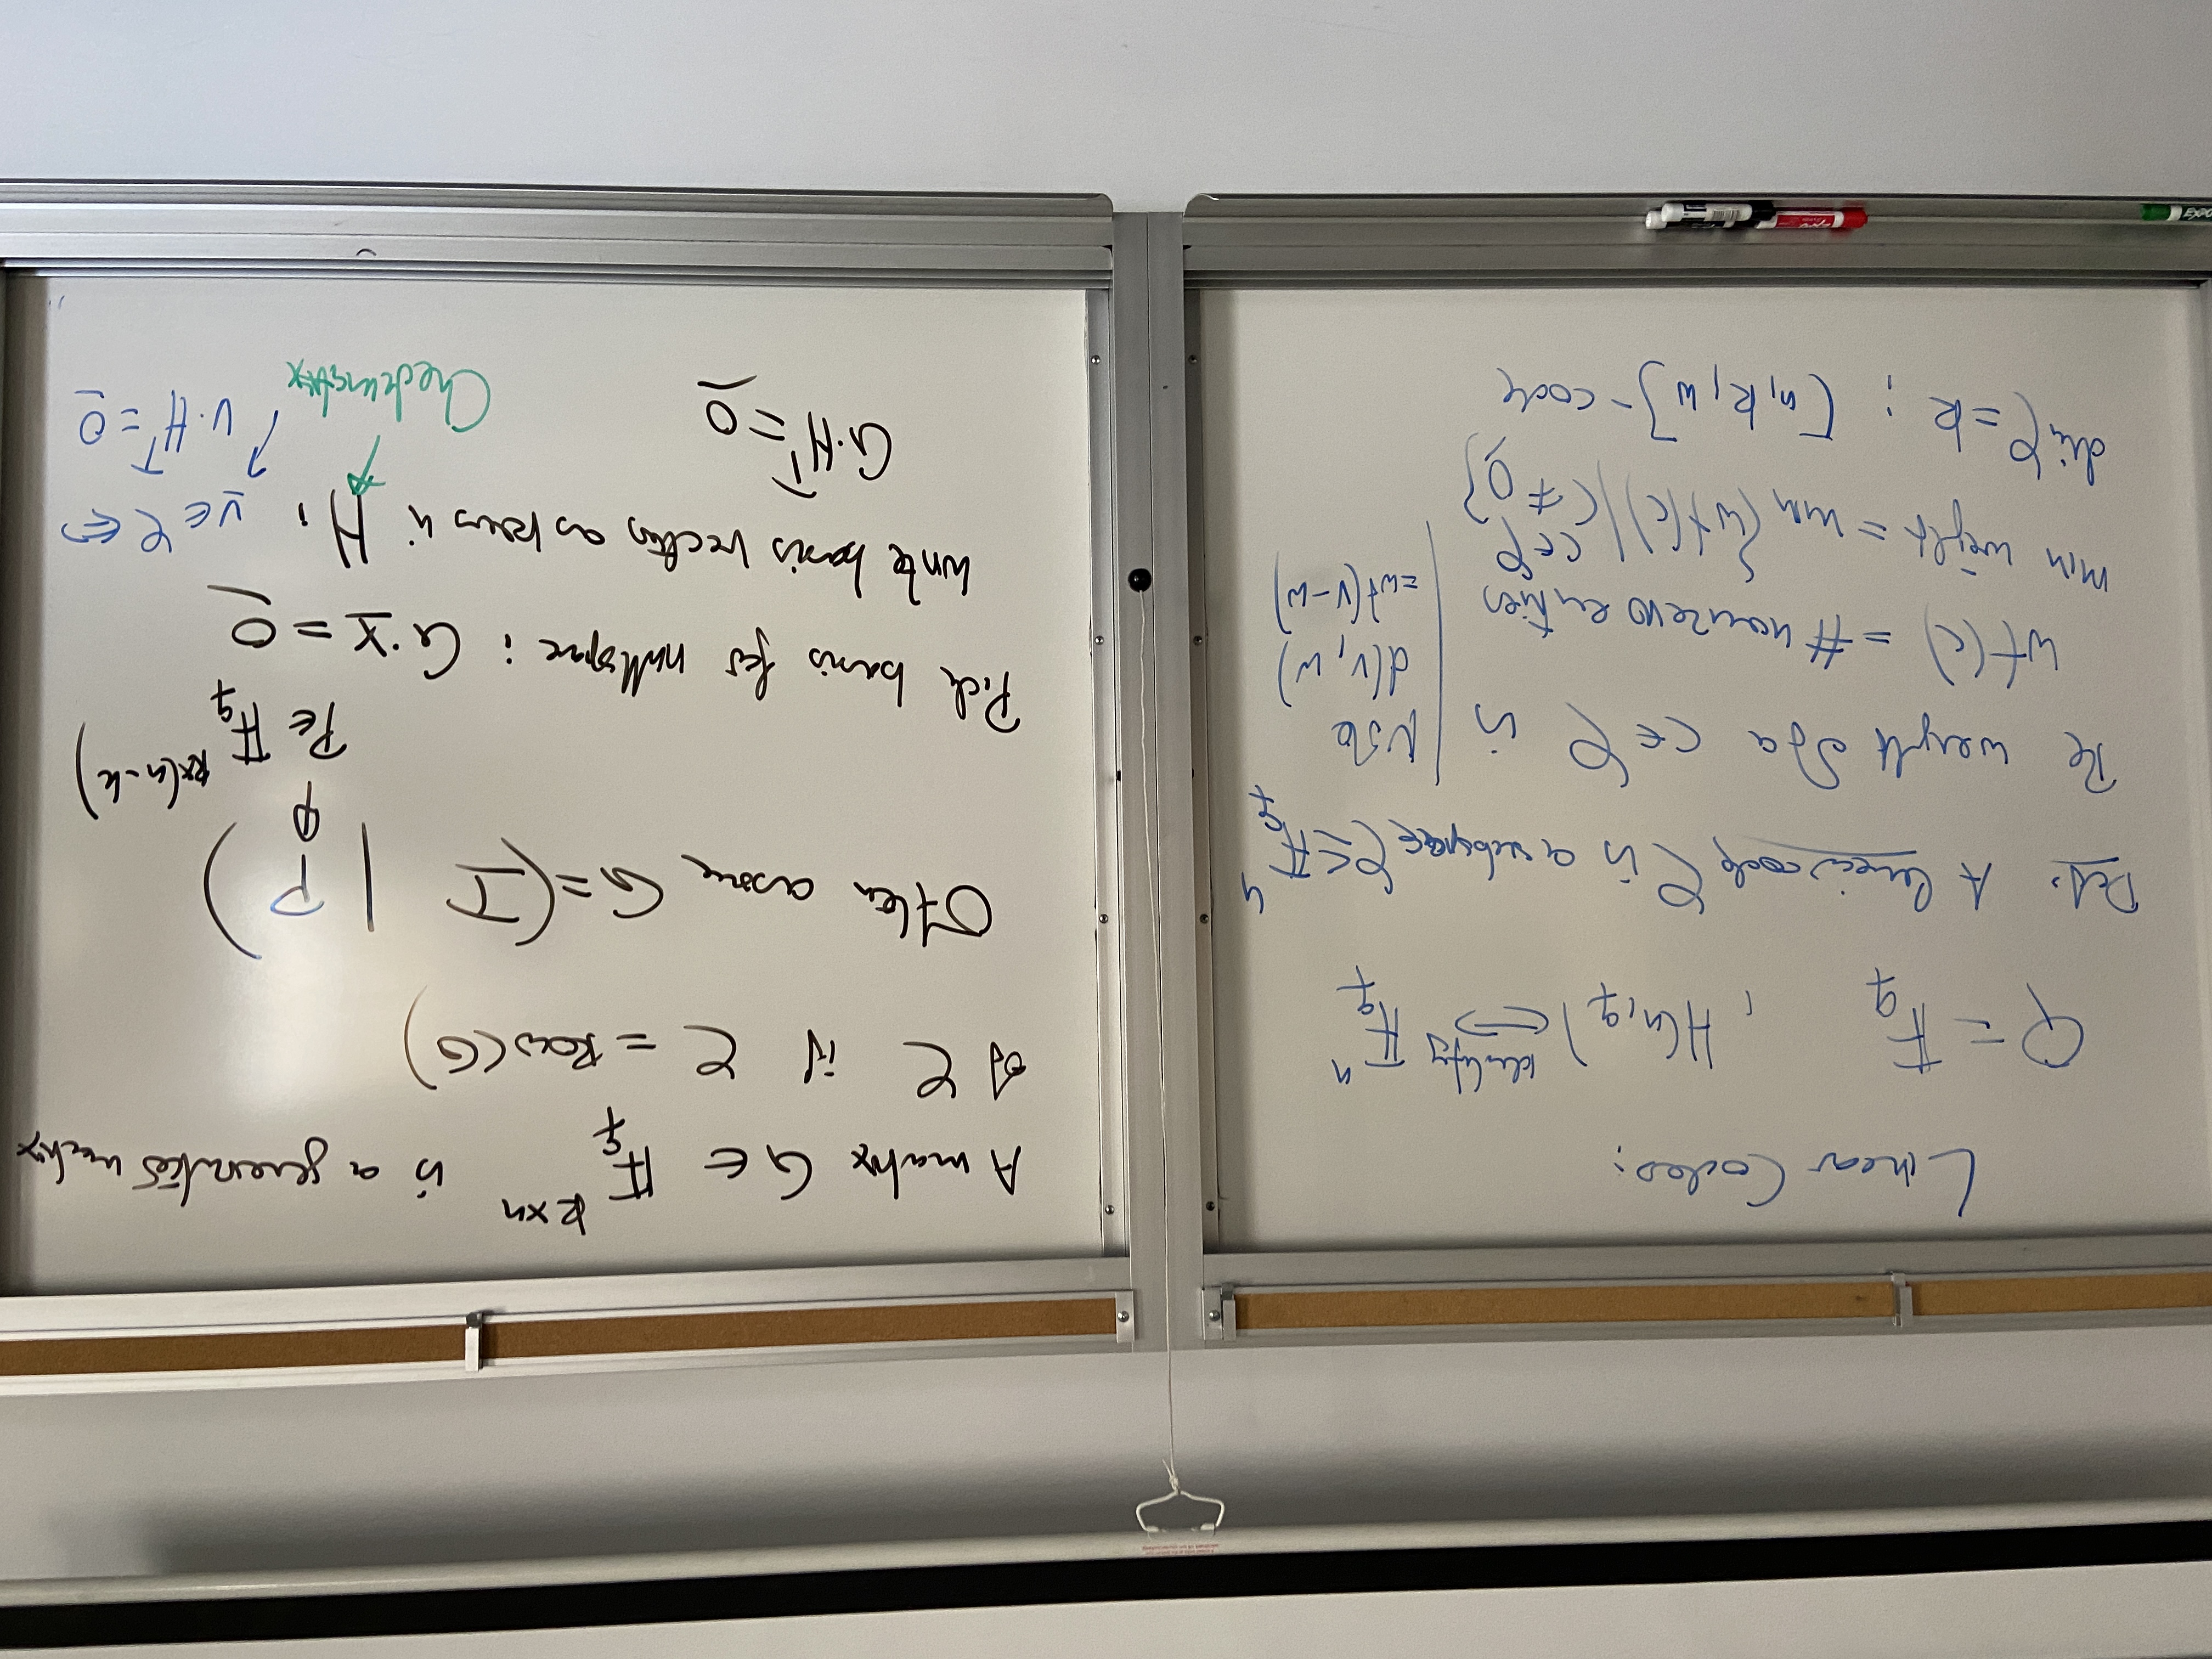 Linear Codes:
Q = F_q , H(n,q) ⟺ identify F_q^n
Def: A linear code C is a subspace C ≤ F_q^n
The weight of a c ∈ C is
wt(c) = # nonzero entries
min weight = min {wt(c) | c ∈ C, c ≠ 0}
dim C = k : [n, k, w] - code
Note
d(v, w)
= wt(v-w)
A matrix G ∈ F_q^{k×n} is a generator matrix
of C if C = Row(G)
Often assume G = (I | P)
P ∈ F_q^{k×(n-k)}
Pick basis for nullspace : G·x = 0
Write basis vectors as rows in H : v ∈ C ⟺
G·H^T = 0
v·H^T = 0
Checkmatrix
EXPO